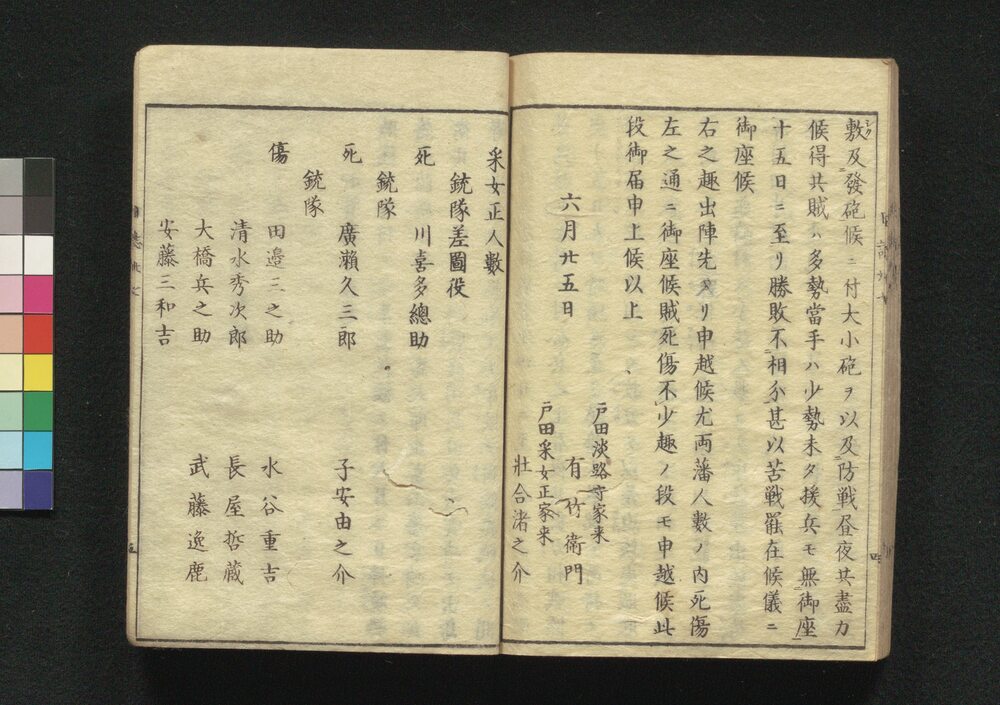 敷及發砲候ニ付大小砲ヲ以及防戦昼夜其盡力
候得共賊ハ多勢當手ハ少勢未タ援兵モ無御座
十五日ニ至リ勝敗不相分甚以苦戦罷在候儀ニ
御座候
右之趣出陣先ヨリ申越候尤両藩人數ノ内死傷
左之通ニ御座候賊死傷不少趣ノ段モ申越候此
段御届申上候以上
六月廿五日
戸田淡路守家来
有竹衛門
戸田采女正家来
壯合渚之介
采女正人數
銃隊差圖役
死 川喜多總助
銃隊
死 廣瀬久三郎 子安由之介
銃隊
傷 田邉三之助 水谷重吉
清水秀次郎 長屋哲蔵
大橋兵之助 武藤逸鹿
安藤三和吉
四
五